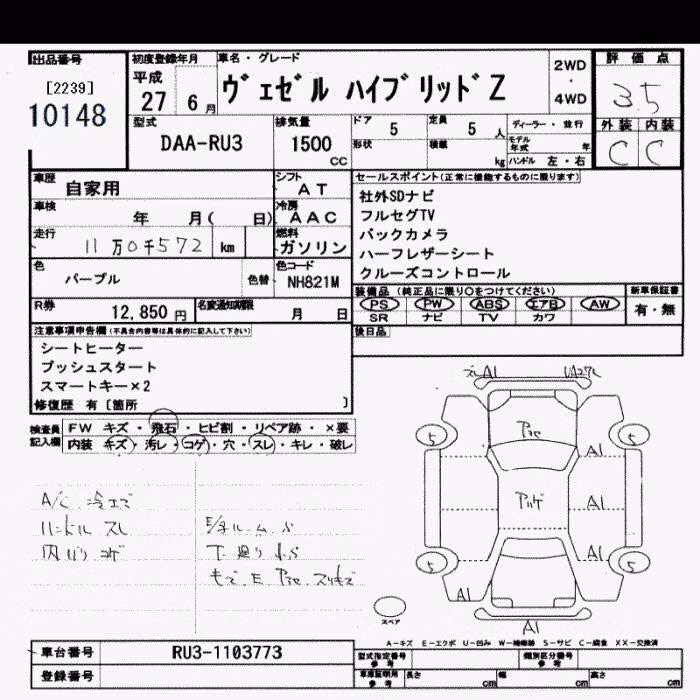 出品番号 初度登録年月 車名・グレード 2WD・4WD 評価点
[2239] 平成 ヴェゼル ハイブリッドZ 3.5
10148 27 6月
型式 排気量 ドア 定員 ディーラー・並行 外装 内装
DAA-RU3 1500 CC 5 5人 モデル年式 年 C C
形状 積載 kg ハンドル 左・右
車歴 自家用 シフト AT セールスポイント(正常に機能するものに限ります)
車検 年 月( 日) 冷房 AAC 社外SDナビ
走行 11万0千572 km 燃料 ガソリン フルセグTV
バックカメラ
ハーフレザーシート
色 パープル 色替 色コード NH821M クルーズコントロール
R券 12,850円 名変通知期限 月 日 装備品(純正品に限り○をつけてください) 新車保証書
PS PW ABS エアB AW 有・無
SR ナビ TV カワ
注意事項申告欄(不具合内容等は具体的に記入して下さい) 後日品
シートヒーター
プッシュスタート
スマートキー×2
修復歴 有[箇所 ]
検査員記入欄 FW キズ・飛石・ヒビ割・リペア跡・×要
内装 キズ・汚レ・コゲ・穴・スレ・キレ・破レ
A1
5 5
A1
A/C
A1
ハンドル スレ
内バリ コゲ
A1
5 5
A1
スペア
A1
A-キズ E-エクボ U-凹み W-補修跡 S-サビ C-腐食 XX-交換済
車台番号 RU3-1103773 型式指定番号 参考 類別区分番号 参考
登録番号 車庫証明用 参考 長さ cm 幅 cm 高さ cm